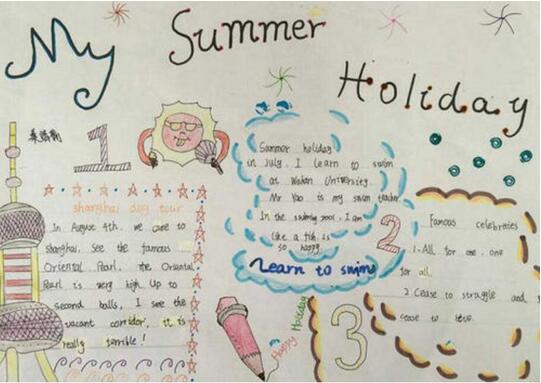 My Summer
Holiday
1
shanghai dog tour
In August 4th, we came to
shanghai, see the famous
Oriental Pearl. the Oriental
Pearl is very high, Up to
second balls, I see the
vacant corridor, it is
really terrible!
Summer holiday
in july, I learn to swim
at Wuhan University
Mr Yao is my swim teacher
In the swimming pool, I am
like a fish is
so happy.
Learn to swim
2
Happy Holiday
3
Famous celebreties
1.All for one, one
for all.
2.Cease to struggle and
cease to live.